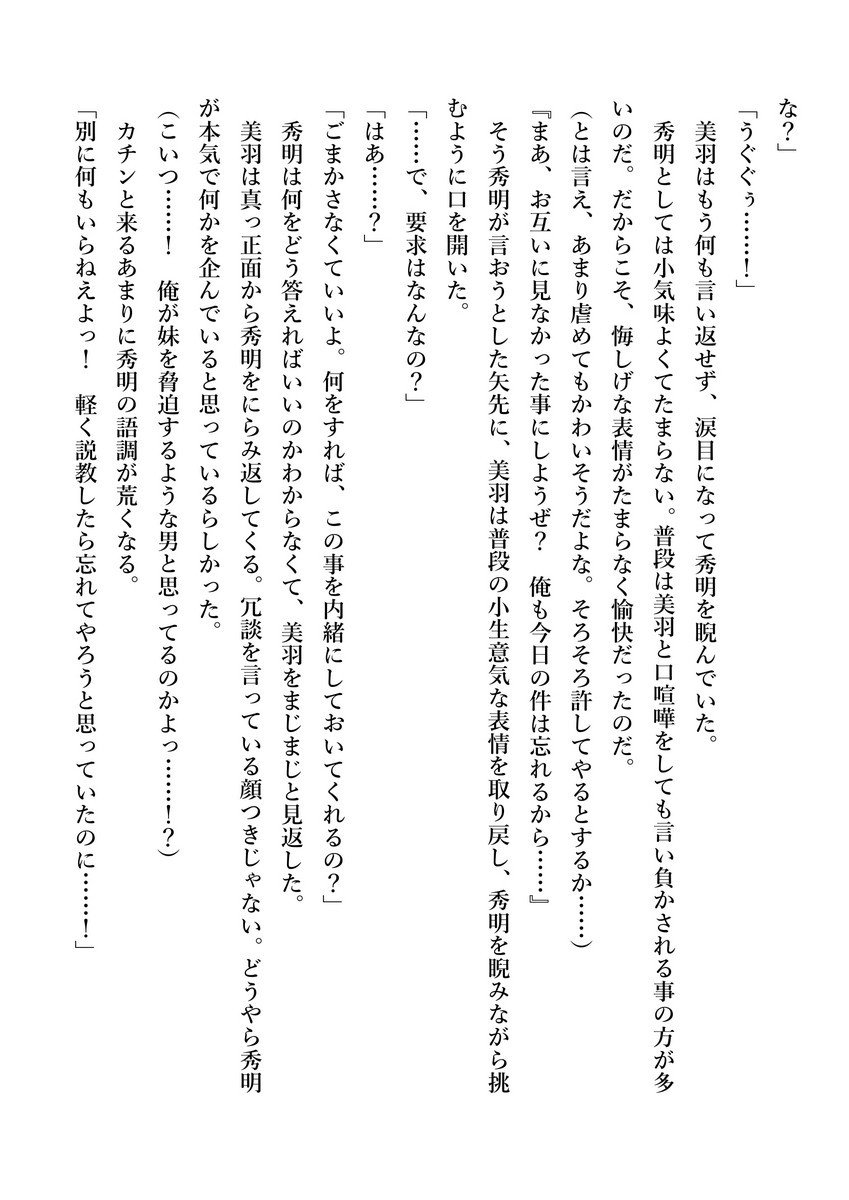 な？」
「うぐぐぅ……！」
　美羽はもう何も言い返せず、涙目になって秀明を睨んでいた。
　秀明としては小気味よくてたまらない。普段は美羽と口喧嘩をしても言い負かされる事の方が多
いのだ。だからこそ、悔しげな表情がたまらなく愉快だったのだ。
（とは言え、あまり虐めてもかわいそうだよな。そろそろ許してやるとするか……）
『まあ、お互いに見なかった事にしようぜ？　俺も今日の件は忘れるから……』
　そう秀明が言おうとした矢先に、美羽は普段の小生意気な表情を取り戻し、秀明を睨みながら挑
むように口を開いた。
「……で、要求はなんなの？」
「はあ……？」
「ごまかさなくていいよ。何をすれば、この事を内緒にしておいてくれるの？」
　秀明は何をどう答えればいいのかわからなくて、美羽をまじまじと見返した。
　美羽は真っ正面から秀明をにらみ返してくる。冗談を言っている顔つきじゃない。どうやら秀明
が本気で何かを企んでいると思っているらしかった。
（こいつ……！　俺が妹を脅迫するような男と思ってるのかよっ……！？）
　カチンと来るあまりに秀明の語調が荒くなる。
「別に何もいらねえよっ！　軽く説教したら忘れてやろうと思っていたのに……！」